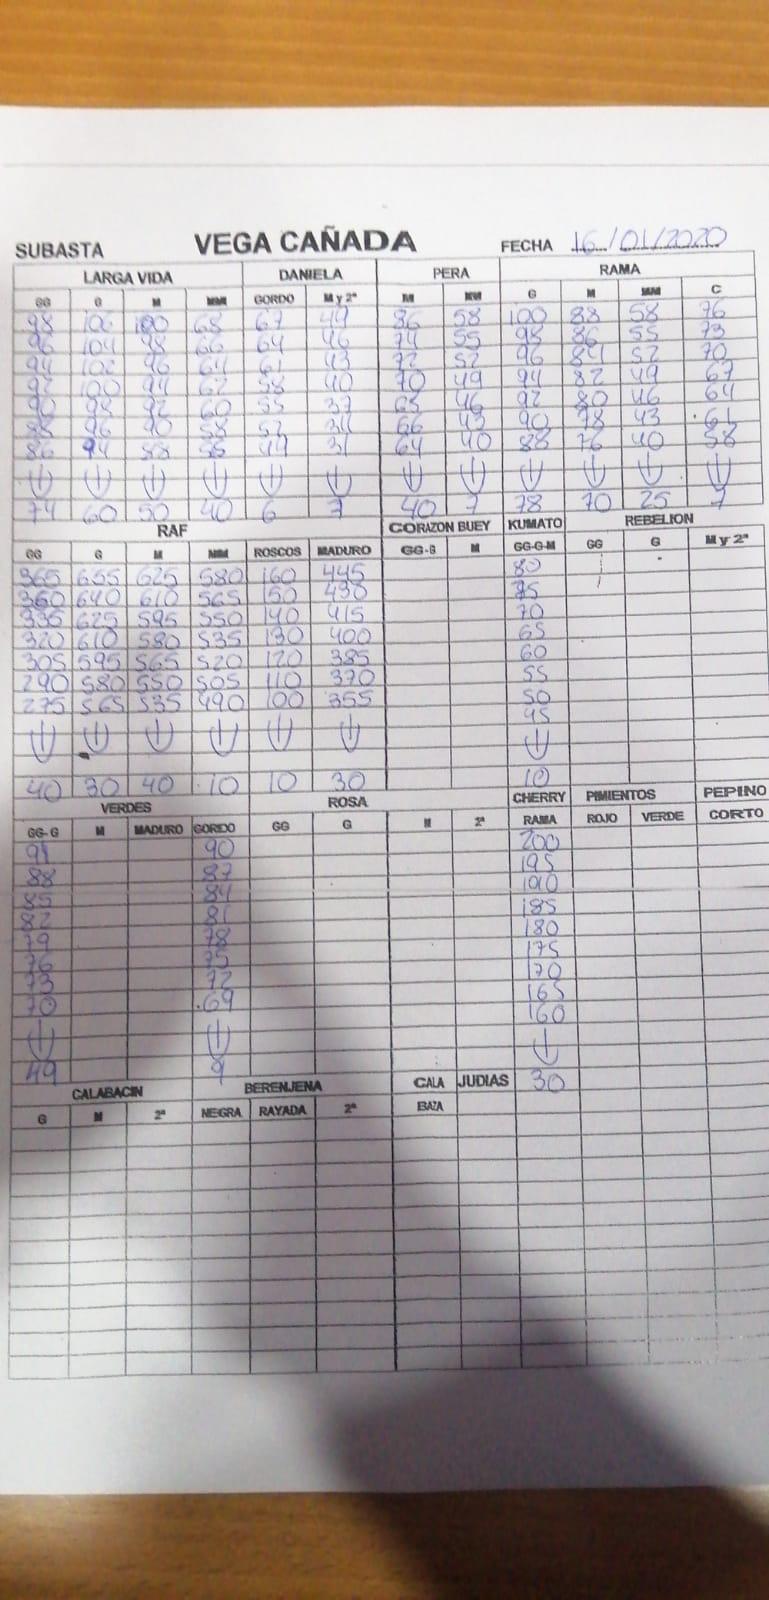 SUBASTA VEGA CAÑADA FECHA 16/01/2020
LARGA VIDA DANIELA PERA RAMA
GG G M MM GORDO M y 2ª M MM G M MM C
98 106 100 68 67 49 86 58 100 88 58 76
96 104 98 66 64 46 74 55 98 86 55 73
94 102 96 64 61 43 72 52 96 84 52 70
92 100 94 62 58 40 70 49 94 82 49 67
90 98 92 60 55 37 68 46 92 80 46 64
88 96 90 58 52 34 66 43 90 78 43 61
86 94 88 49 31 64 40 88 76 40 58
74 60 50 40 6 7 40 7 78 70 25 7
RAF CORAZON BUEY KUMATO REBELION
GG G M MM ROSCOS MADURO GG-G M GG-G-M GG G M y 2ª
365 655 625 580 160 445 80
350 640 610 565 150 430 75
335 625 595 550 140 415 70
320 610 580 535 130 400 65
305 595 565 520 120 385 60
290 580 550 505 110 370 55
275 565 535 490 100 355 50
45
40 30 40 10 10 30 10
VERDES ROSA CHERRY PIMIENTOS PEPINO
GG-G M MADURO GORDO GG G M 2ª RAMA ROJO VERDE CORTO
91 90 200
88 87 195
85 84 190
82 81 185
79 78 180
76 75 175
73 72 170
70 69 165
160
49 9 30
CALABACIN BERENJENA CALA JUDIAS
G M 2ª NEGRA RAYADA 2ª BAZA